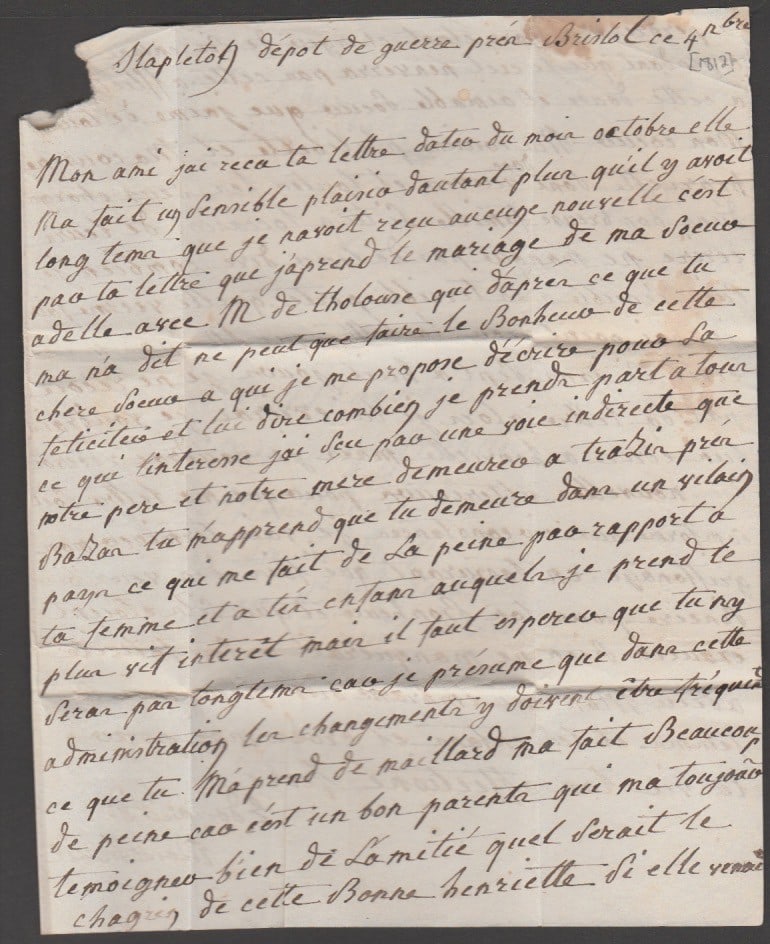 Stapleton dépot de guerre prés Bristol ce 4 nbre
[1812]
Mon ami jai recu ta lettre datée du mois octobre elle
Ma fait un sensible plaisir dautant plus quil y avoit
long tems que je navoit reçu aucune nouvelle cést
par ta lettre que j'aprend le mariage de ma Soeur
adelle avec M de tholouse qui d'aprés ce que tu
ma n'a dit ne peut que faire le Bonheur de cette
chere Soeur a qui je me propose d'écrire pour La
feliciter et lui dire combien je prends part a tour
ce qui l'interesse jai Sçu par une voie indirecte que
notre pere et notre mére demeurer a traZin prés
BaZas tu m'apprend que tu demeure dans un vilain
pays ce qui me fait de La peine par rapport a
ta femme et a tés enfans auquels je prend le
plus vif interêt mais il faut esperer que tu n'y
Seras pas longtems car je présume que dans cette
administration les changements y doivent être fréquen
ce que tu M'aprend de maillard ma fait Beaucoup
de peine car cést un bon parents qui ma toujours
temoigner bien de L'amitié quel Serait le
chagrin de cette Bonne henriette Si elle venai